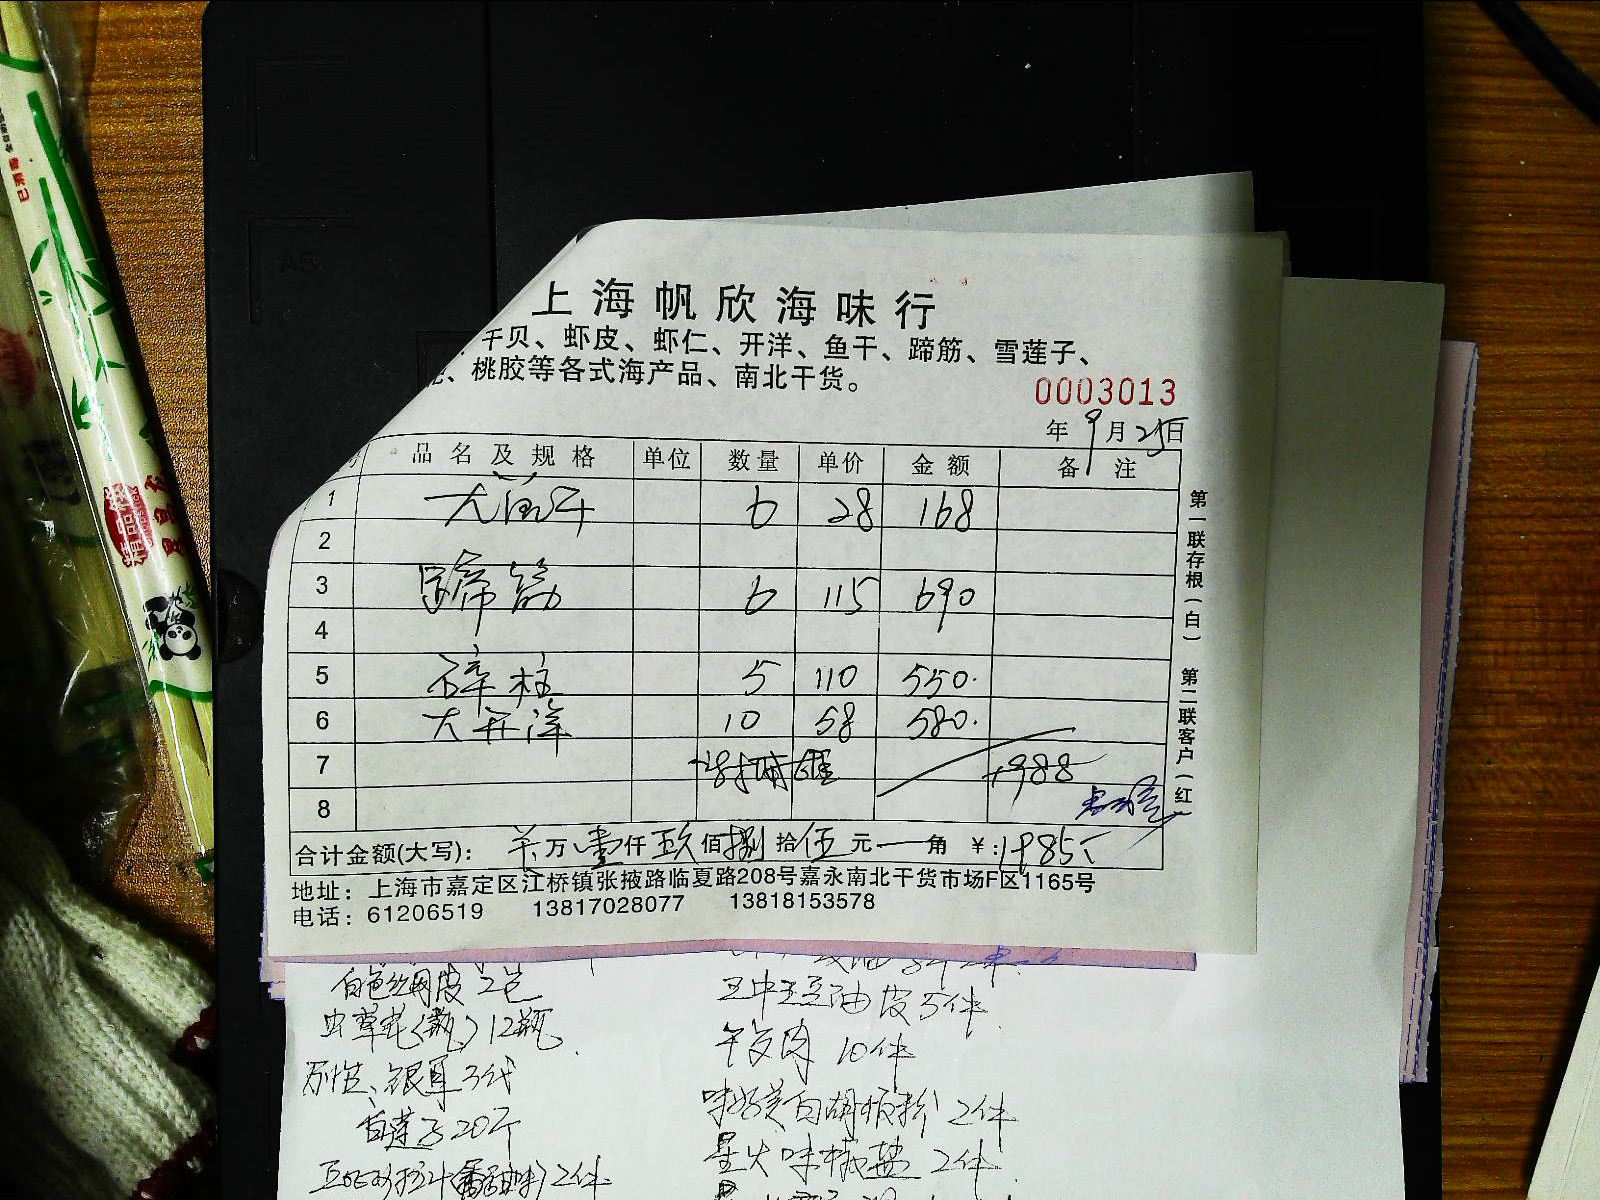 上海帆欣海味行
干贝、虾皮、虾仁、开洋、鱼干、蹄筋、雪莲子、
桃胶等各式海产品、南北干货。
0003013
年 9月25日
品名及规格 单位 数量 单价 金额 备注
1 6 28 168
2
3 蹄筋 6 115 690
4
5 碎柱 5 110 550.
6 大开洋 10 58 580.
7 1988
8
合计金额(大写): 万壹仟玖佰捌拾伍元一角 ¥:1985
地址：上海市嘉定区江桥镇张掖路临夏路208号嘉永南北干货市场F区1165号
电话：61206519 13817028077 13818153578
第一联存根(白) 第二联客户(红
白色丝网皮2包
虫草花(瓶)12瓶
银耳3代
白莲子20斤
2件
豆油皮5件
午餐肉10件
味好美白胡椒粉2件
星火味椒盐2件
精品筷
A5